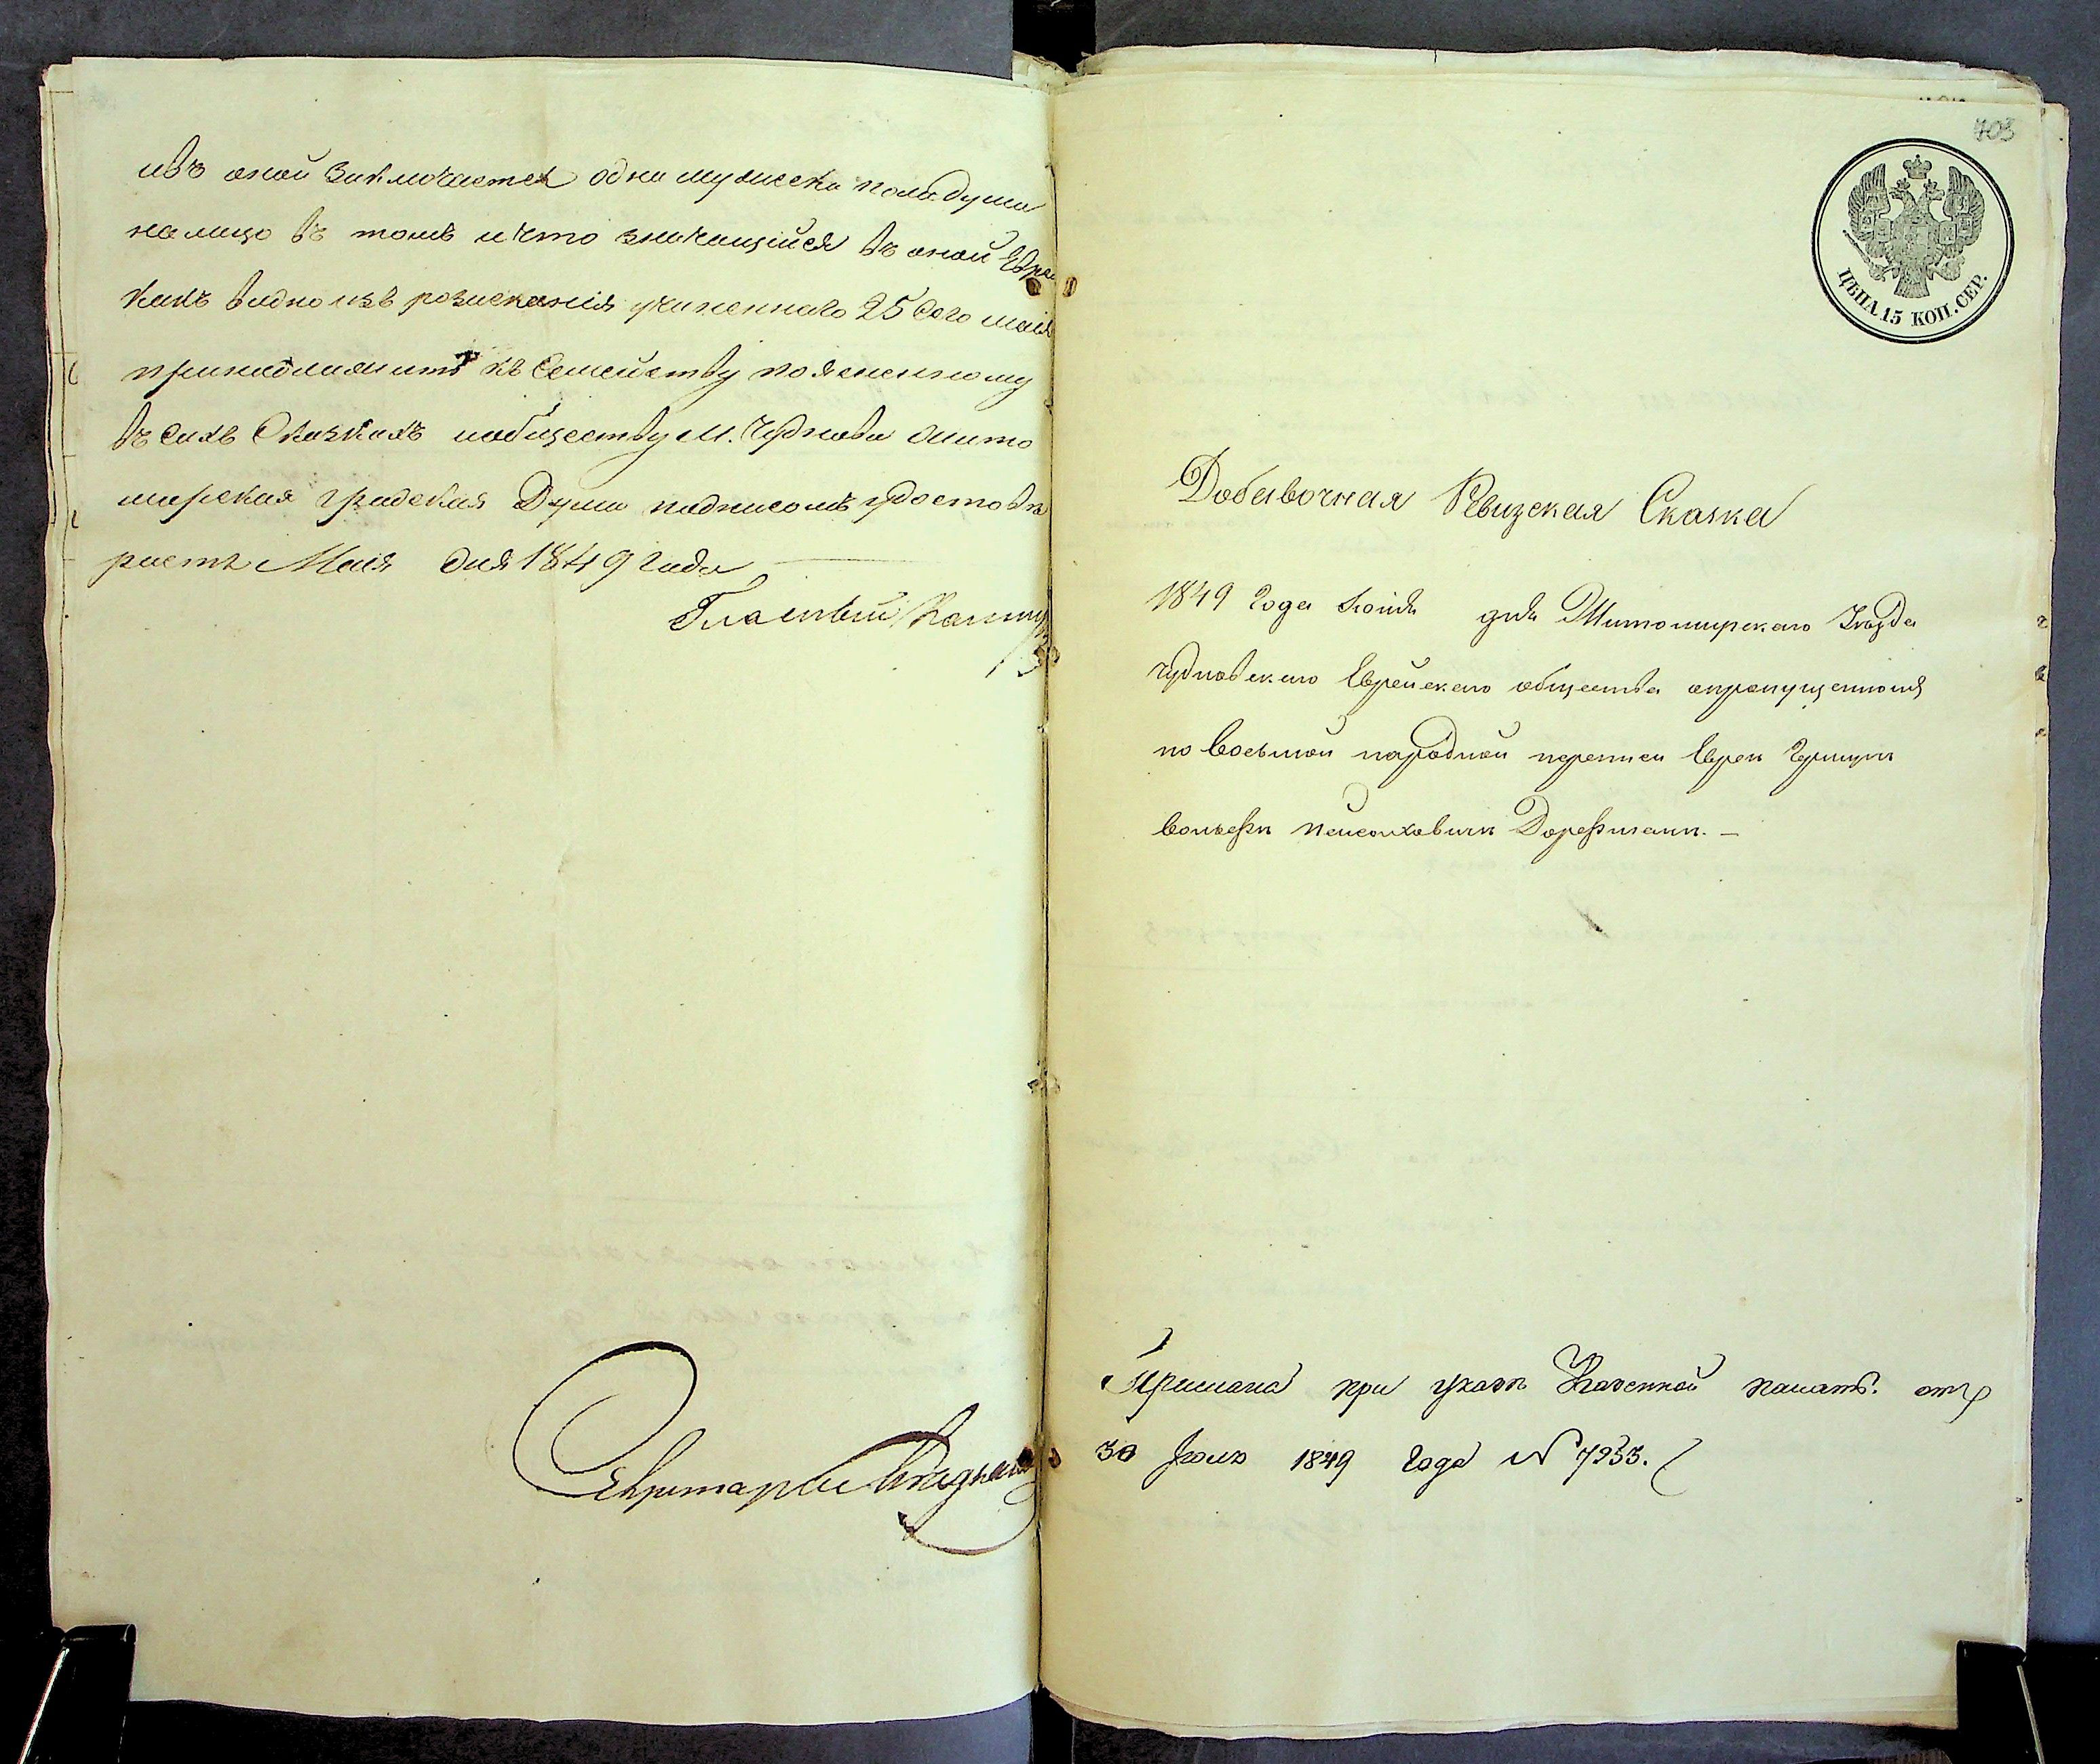 изъ оной заключается одна мужеска пола душа
налицо въ томъ и что значащійся въ оной Еврей
какъ видно изъ розисканія учиненнаго 25 сего маія
принадлежитъ къ семейству поясненному
въ сихъ Сказкахъ и обществу м. Чуднова Жито
мирская градская Дума подписомъ удостовѣ
ряетъ Маія дня 1849 года
Гласный
Секретарь
703
ЦѢНА 15 КОП. СЕР.
Добавочная Ревизская Сказка
1849 года Іюня дня Житомирскаго Уѣзда
Чудновскаго Еврейскаго общества о пропущенномъ
по восьмой народной переписи Евреѣ
Вольфѣ Пейсаховичѣ Дорфманѣ. —
Прислана при указѣ Казенной палаты. отъ
30 Іюня 1849 года № 7233.